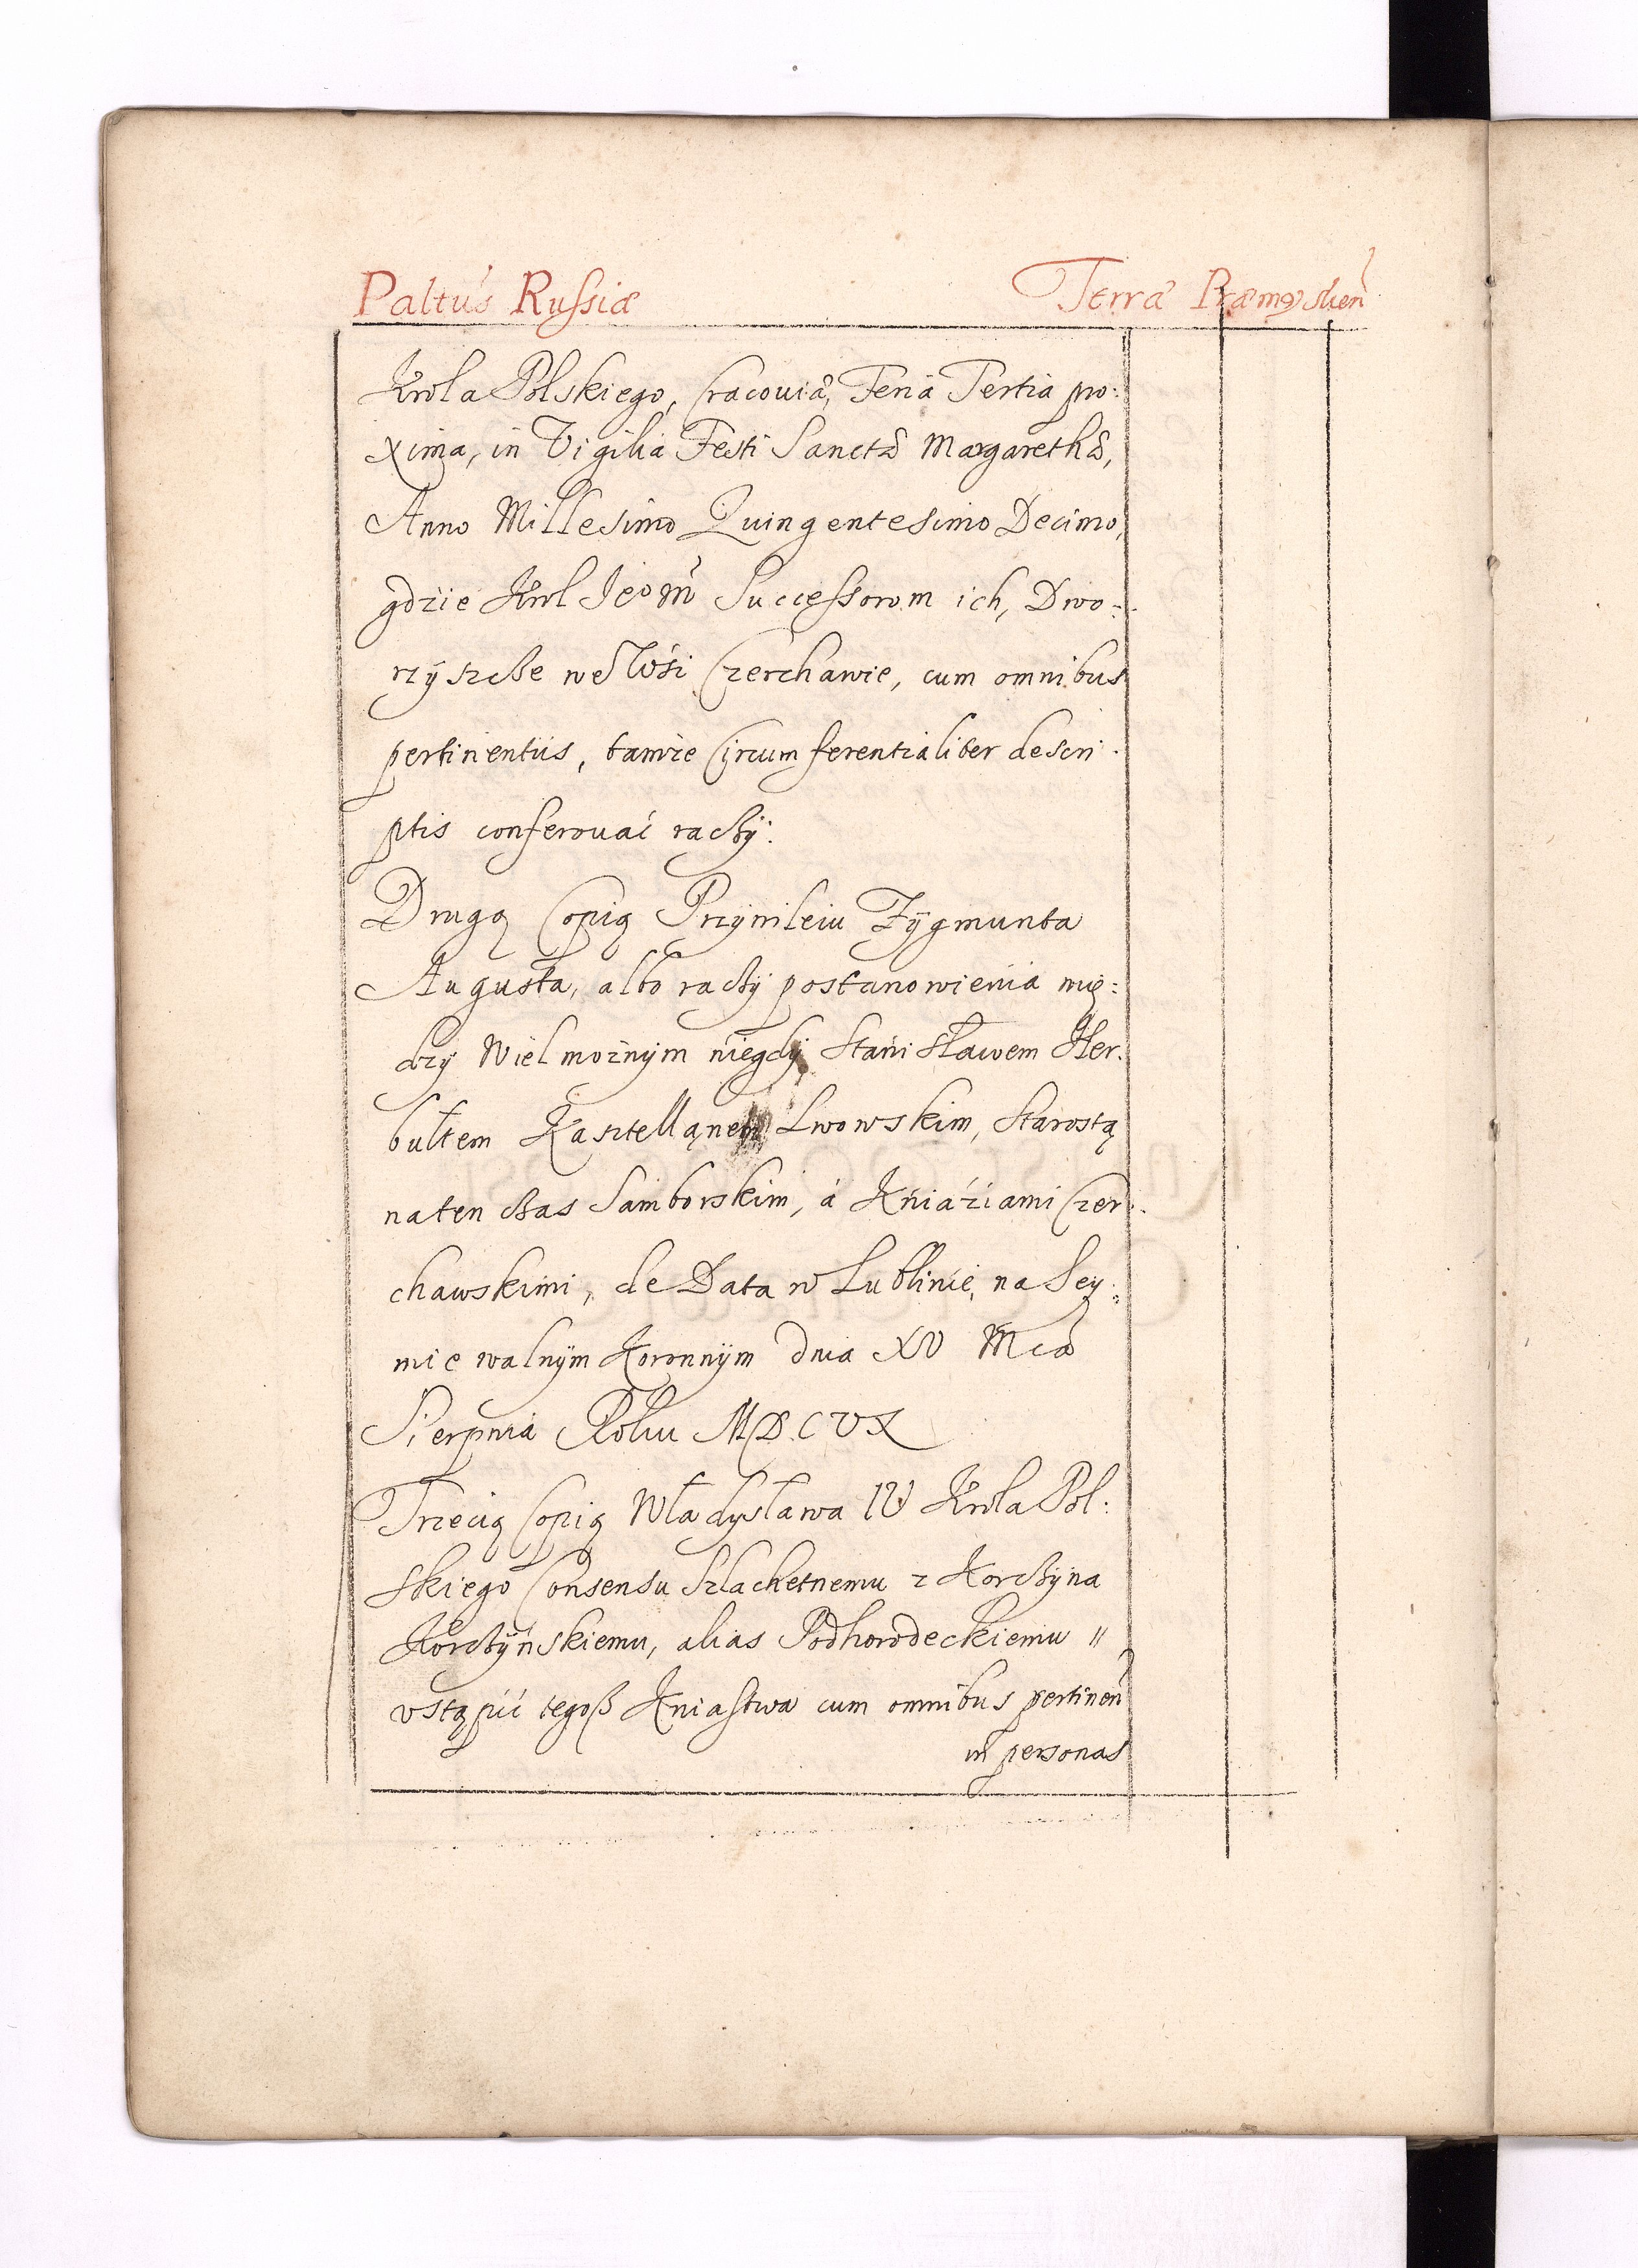 Paltus Russiæ Terræ Præmysłien
Krola Polskiego, Cracoviæ, Feria Tertia pro:
xima, in Vigilia Festi Sanctæ Margarethæ,
Anno Millesimo Quingentesimo Decimo,
gdzie Krol Jeom̃ Successorom ich, Dwo:
rzÿszcze we Wśi Czerchawie, cum omnibus
pertinentiis, tamże Cÿrcumferentialiter descri:
ptis conferować raczÿ.
Drugą Copią Przÿwileiu Zÿgmunta
Augusta, albo raczÿ postanowienia mię:
dzÿ Wielmożnÿm niegdÿ Stanisławem Her:
bultem Kasztellanem Lwowskim, Starostą
naten czas Samborskim, á Kniáźiami Czer:
chawskimi, de Data w Lublinie, na Sey:
mie walnÿm Koronnÿm dnia XV Mcá
Sierpnia Roku MDCVX
Trzecią Copią Władysława IV Krola Pol:
skiego Consensu Szlachetnemu z Korczÿna
Korczÿńskiemu, alias Podhorodeckiemu //
vstąpić tegoß Kniastwa cum omnibus pertinen̄
in personas